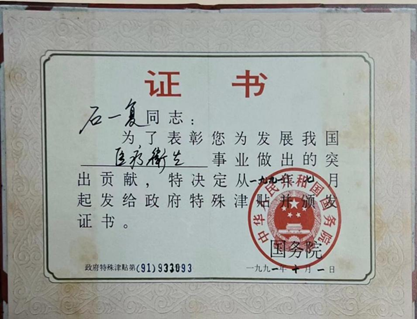 证书
石一复同志：
为了表彰您为发展我国
医疗衛生事业做出的突
出贡献，特决定从一九九一年七月
起发给政府特殊津贴并颁发
证书。
中华人民共和国国务院
国务院
政府特殊津贴第(91)933093
一九九一年十月一日